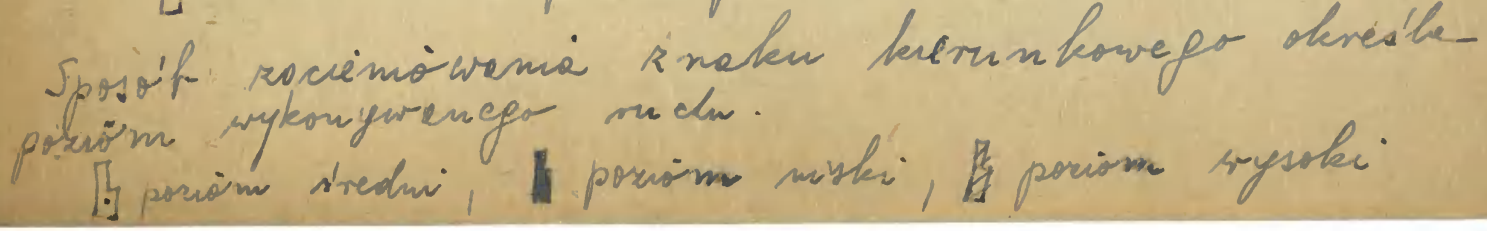 Sposób zacieniówania znaku kierunkowego określa
pozióm wykonywanego ruchu.
pozióm średni, pozióm niski, poziom wysoki